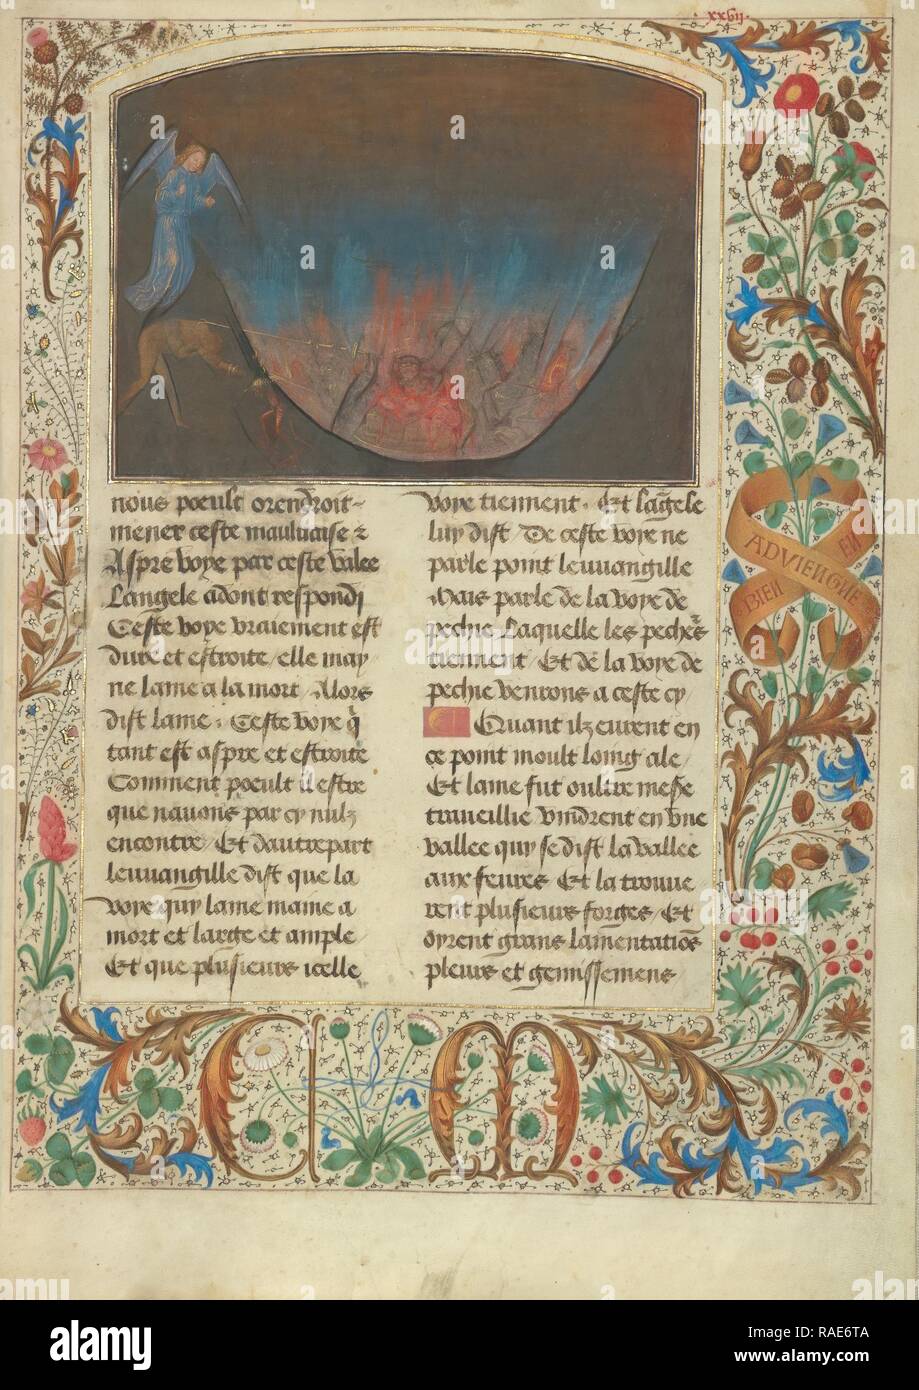 xxvij
nous pœult orendroit
mener ceste mauluaise &
Aspre voye par ceste valee
Langele adont respondj
Ceste voye vraiement est
dure et estroite / elle may
ne lame a la mort / Alors
dist lame / Ceste voye q̃
tant est aspre et estroite
Comment pœult il estre
que nauons par cy nulz
encontre / Et dautre part
leuuangille dist que la
voye quy lame maine a
mort est large et ample /
Et que plusieurs icelle
voye tiennent / Et lãgele
luy dist / De ceste voye ne
parle point leuuangille
Mais parle de la voye de
pechie Laquelle les pechr̃s
tiennent / Et de la voye de
pechie venrons a ceste cy /
Quant ilz eurent en
ce point moult loing ale /
Et lame fut oultre mesṽe
traueillie vindrent en vne
vallee quy se dist la vallee
aux feures Et la trouue
rent plusieurs forges / Et
oyrent grans lamentatiõs
pleurs et gemissemens
BIEN EN
ADVIENGNE
C M
alamy
Image ID: RAE6TA
www.alamy.com